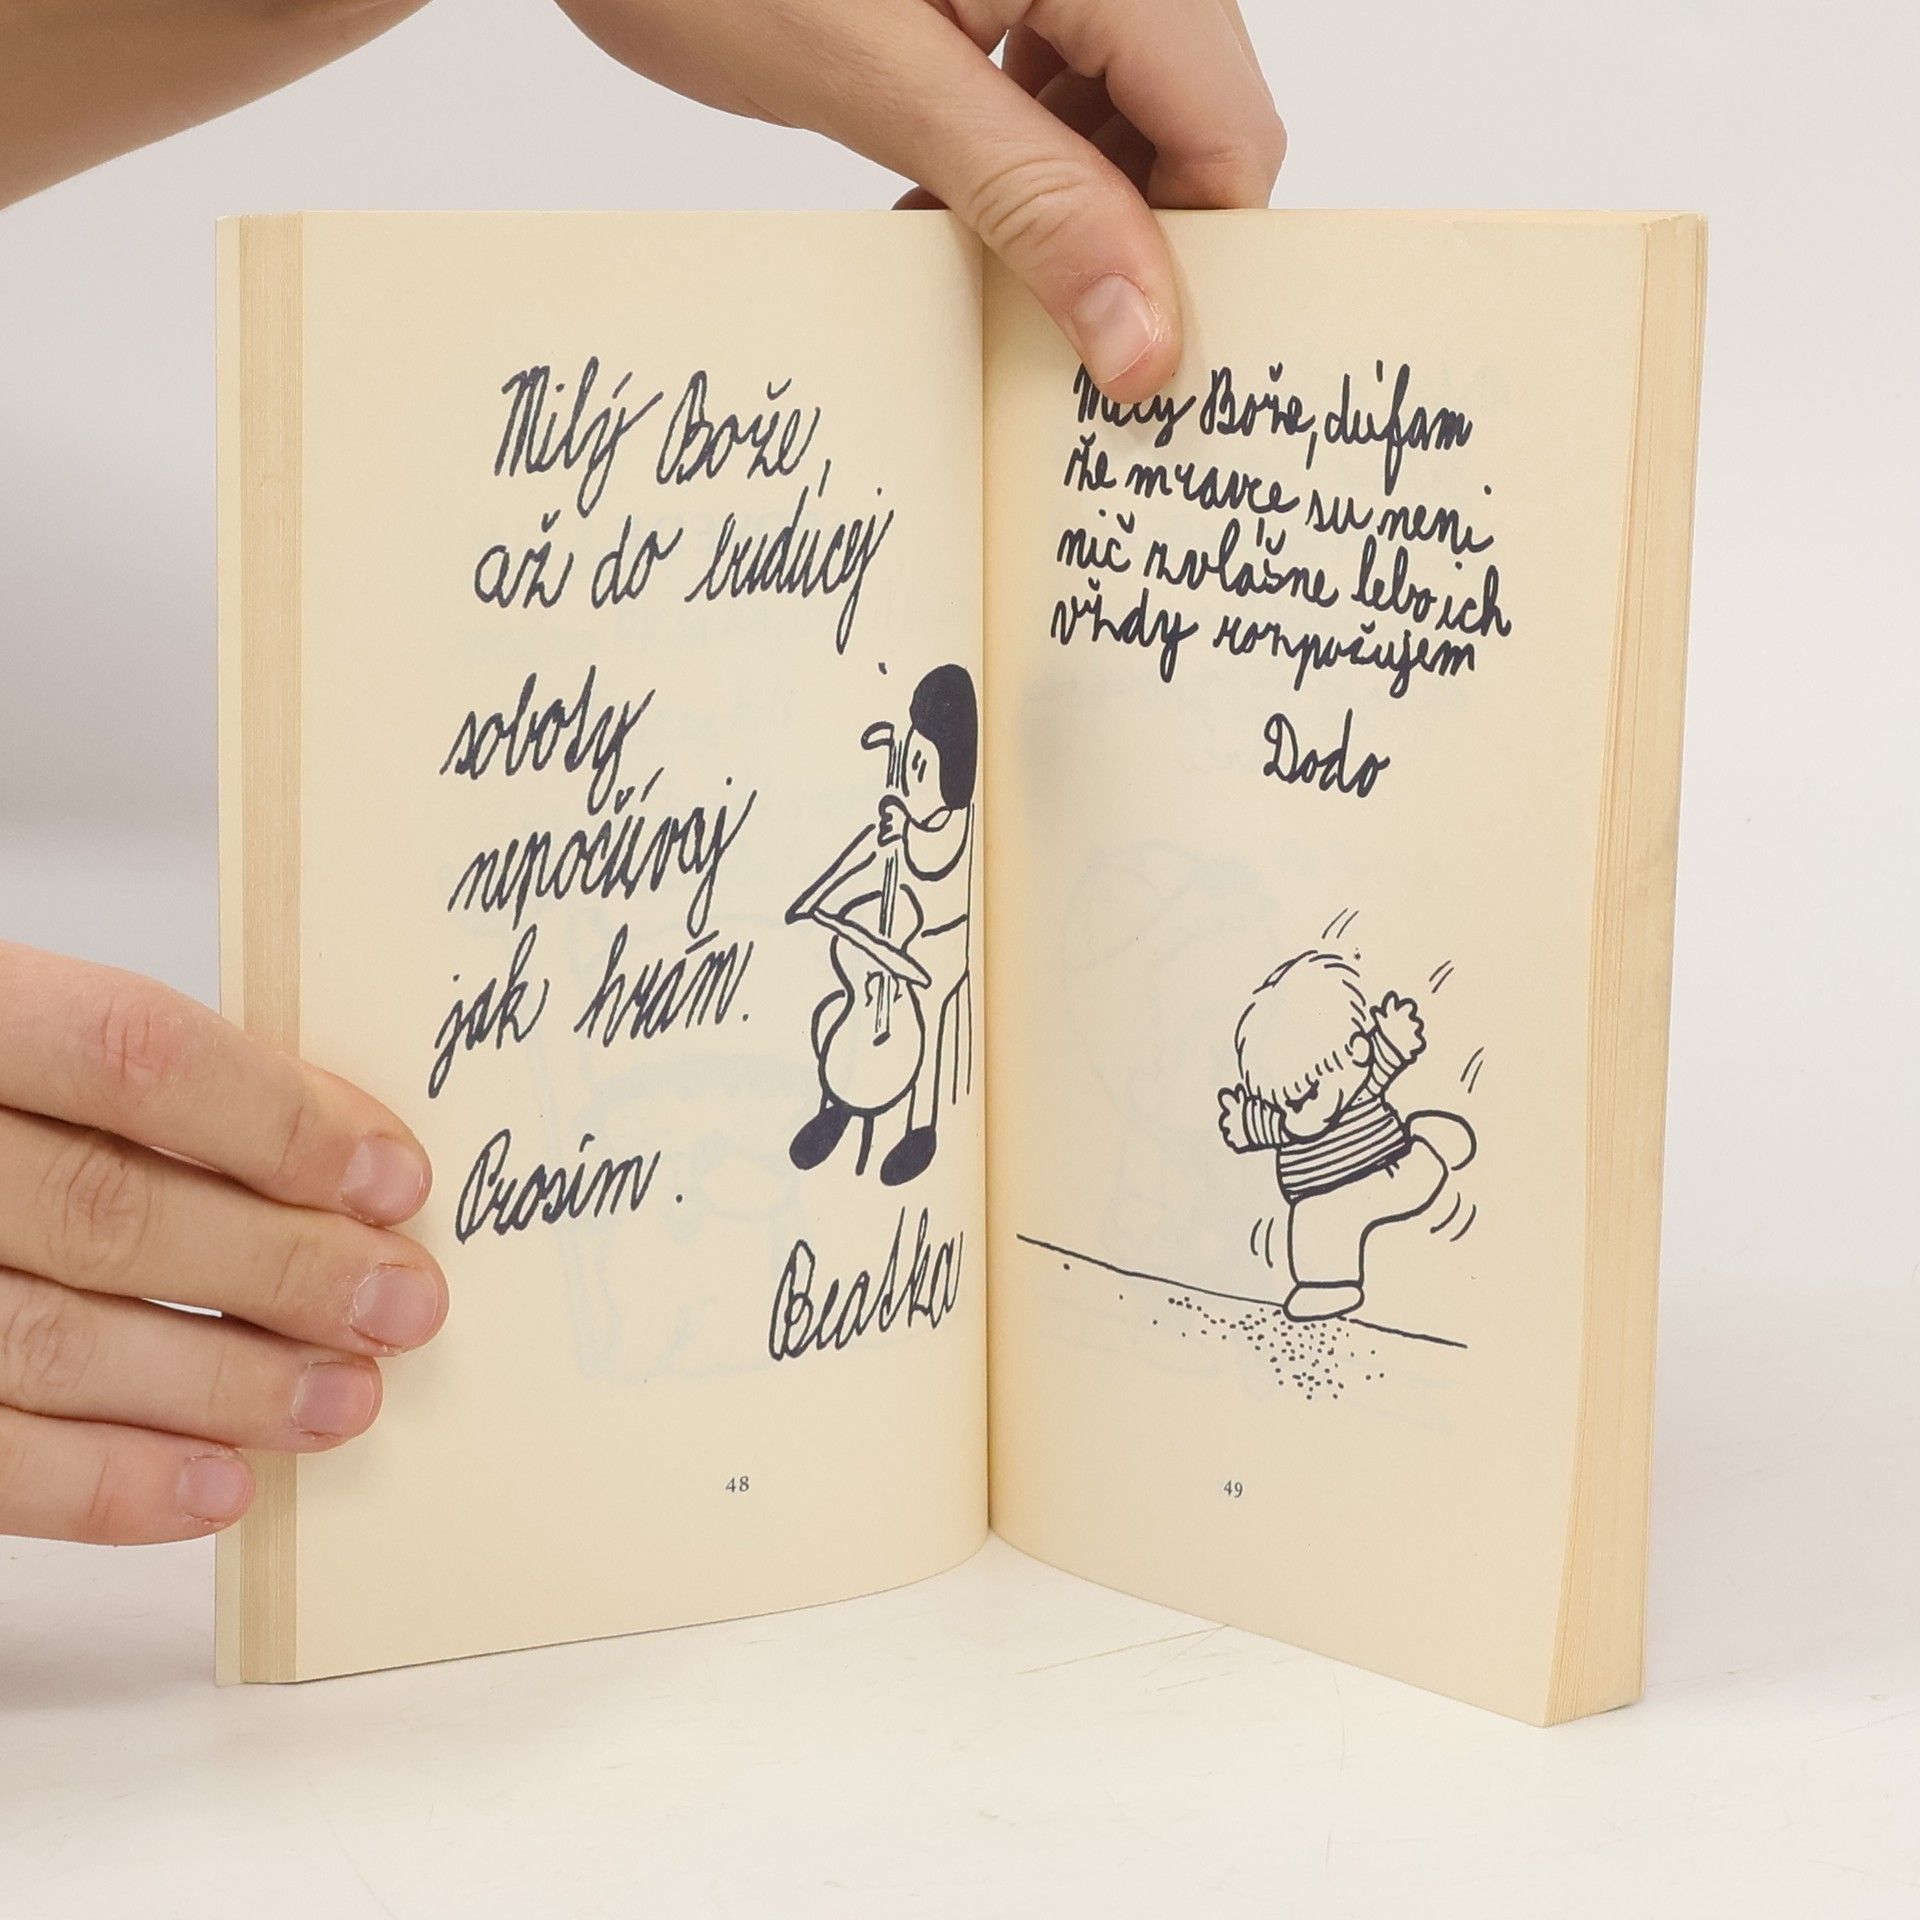 Milý Bože,
až do budúcej
soboty
nepočúvaj
jak hrám.
Prosím.
Beatka
48
Milý Bože, dúfam
že mravce su neni
nič zvlášne lebo ich
vždy rozpučujem
Dodo
49